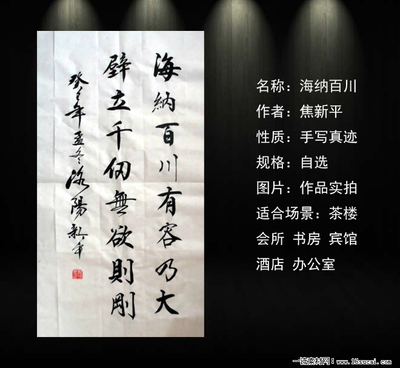 海納百川有容乃大
壁立千仞無欲則剛
癸巳年孟冬洛陽新平
名称：海纳百川
作者：焦新平
性质：手写真迹
规格：自选
图片：作品实拍
适合场景：茶楼
会所 书房 宾馆
酒店 办公室
www.16sucai.com